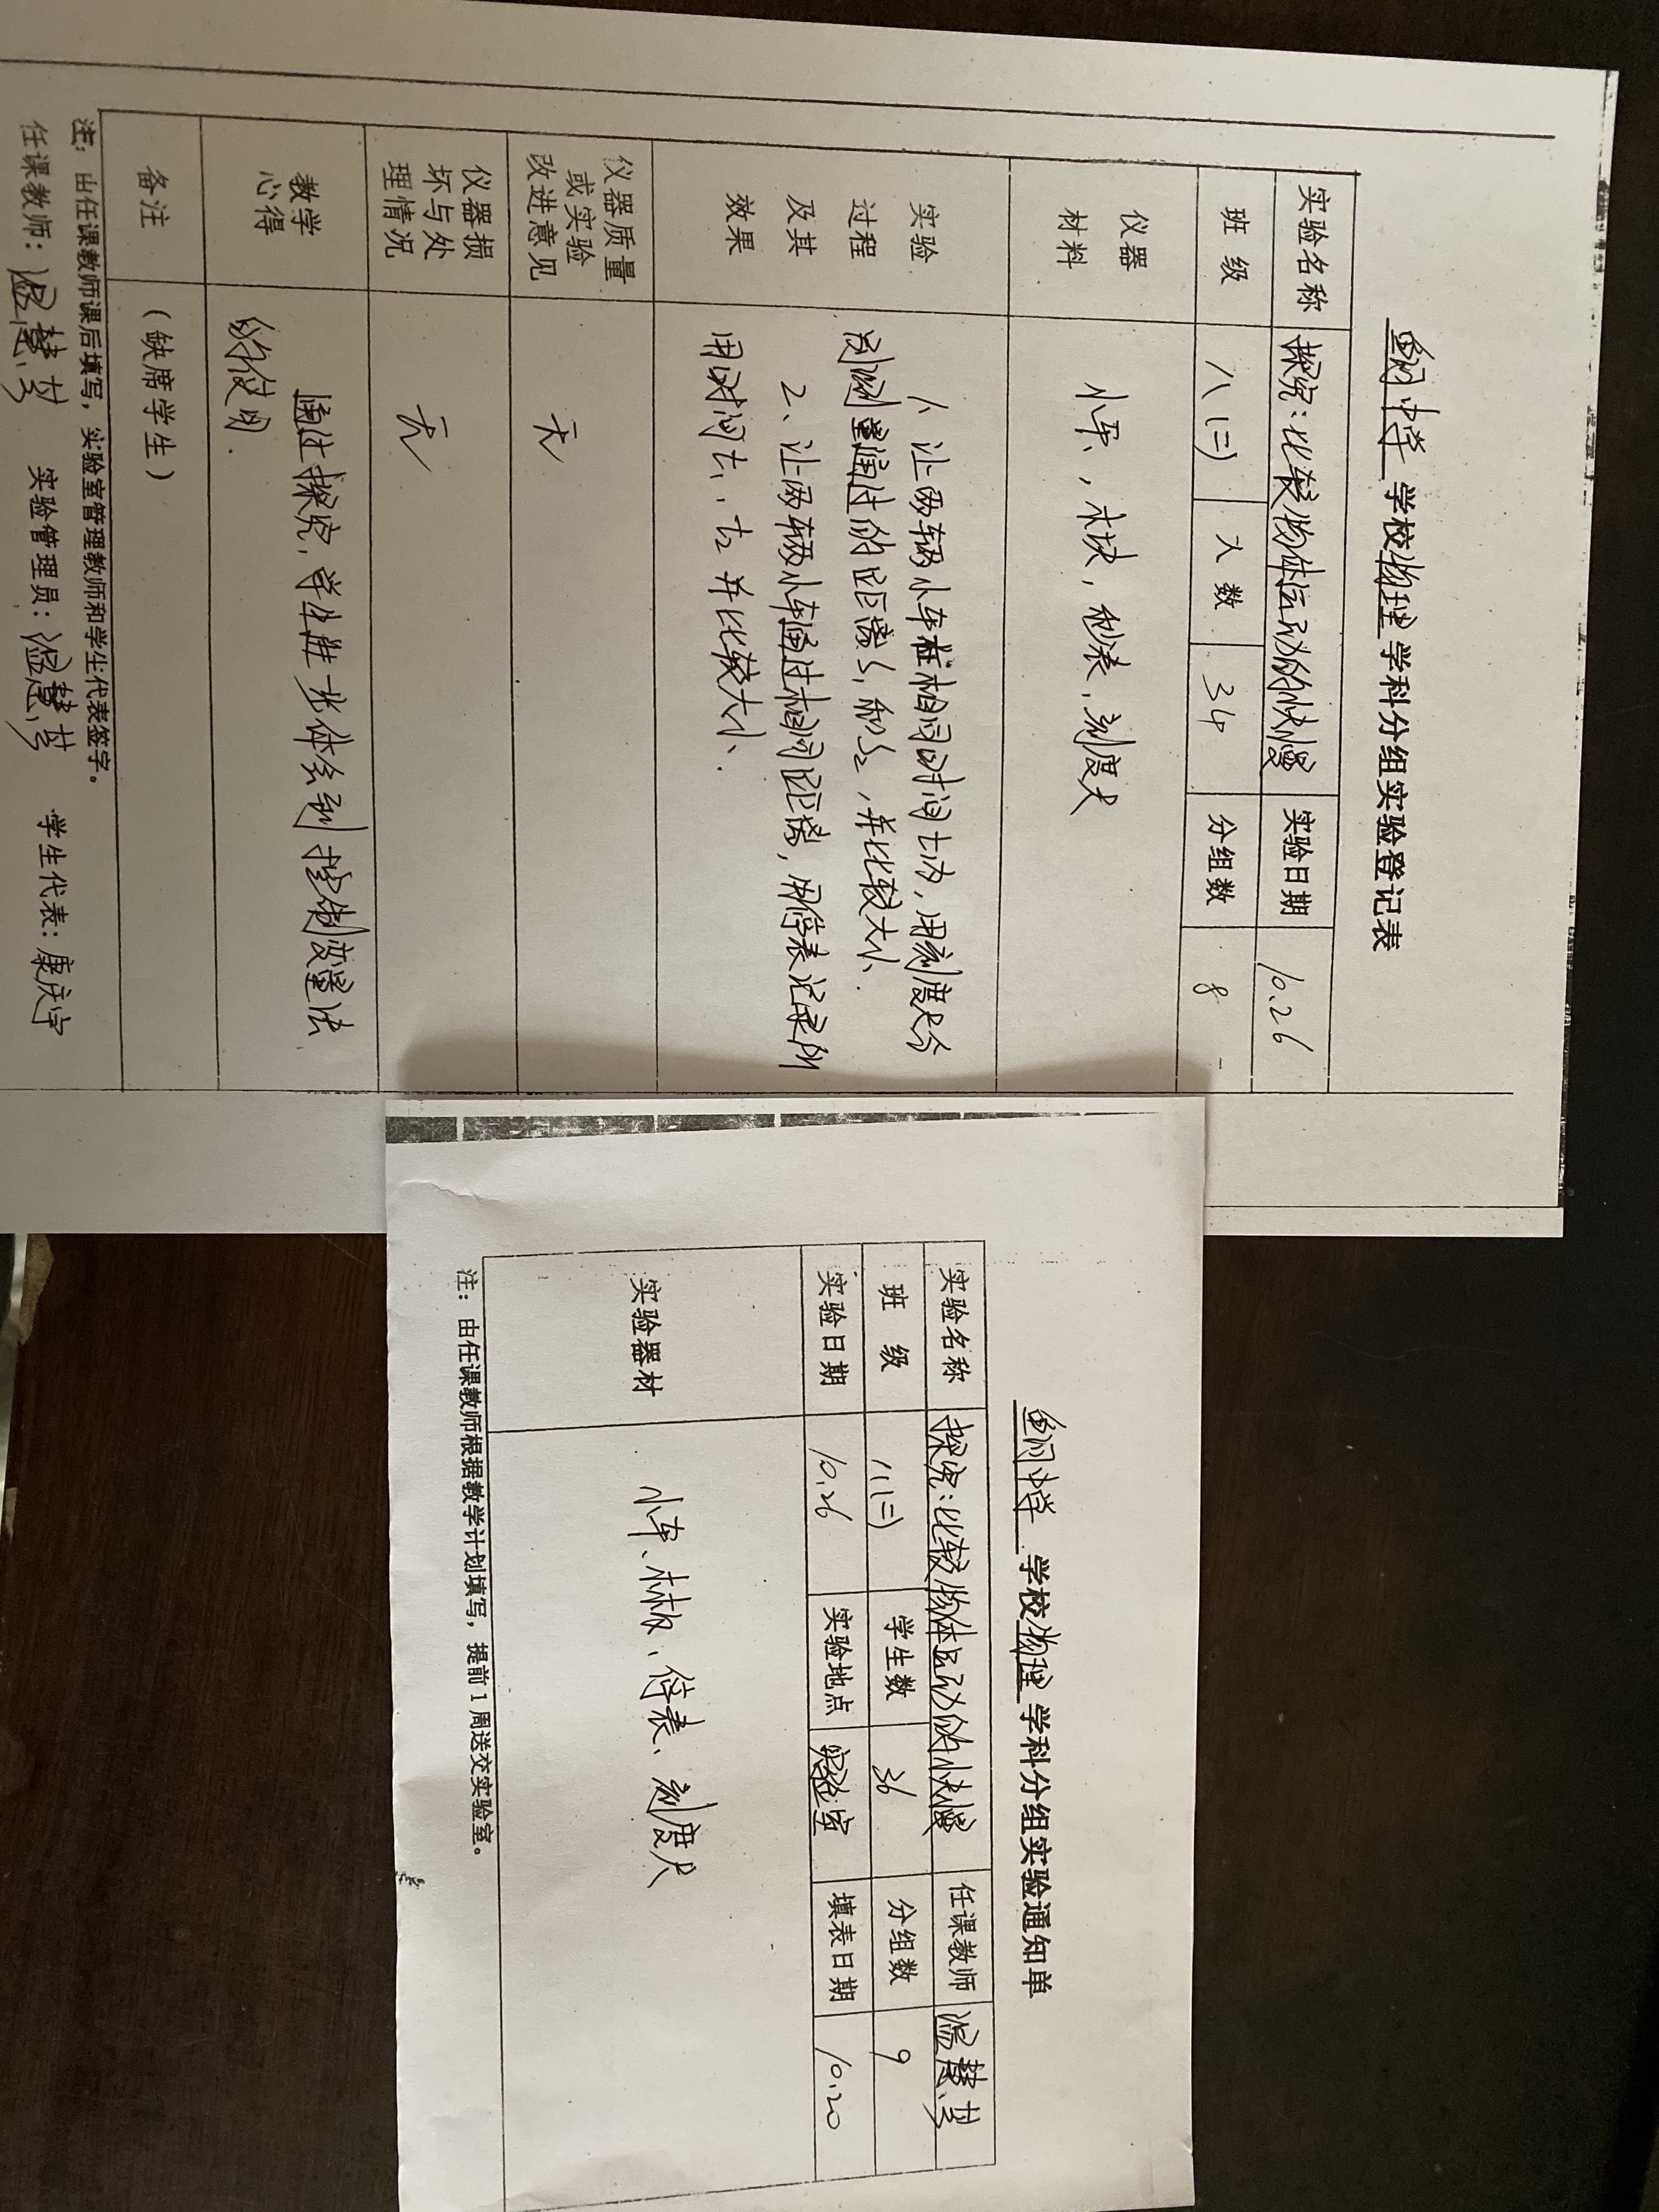 鱼河中学 学校物理学科分组实验登记表
实验名称 探究:比较物体运动的快慢 实验日期 10.26
班 级 八(二) 人 数 34 分组数 8
仪器
材料
小车,木块,秒表,刻度尺
实验
过程
及其
效果
1、让两辆小车在相同时间t内,用刻度尺分
别测量通过的距离S1和S2,并比较大小.
2、让两辆小车通过相同距离,用停表记录所
用时间t1,t2并比较大小.
仪器质量
或实验
改进意见
无
仪器损
坏与处
理情况
无
教学
心得
通过探究,学生进一步体会到控制变量法
的使用.
备注 (缺席学生)
注:由任课教师课后填写,实验室管理教师和学生代表签字。
任课教师: 实验管理员: 学生代表:康庆宇
鱼河中学 学校物理学科分组实验通知单
实验名称 探究:比较物体运动的快慢 任课教师
班 级 八(二) 学生数 36 分组数 9
实验日期 10.26 实验地点 实验室 填表日期 10.20
实验器材 小车、木板、停表、刻度尺
注:由任课教师根据教学计划填写,提前1周送交实验室。